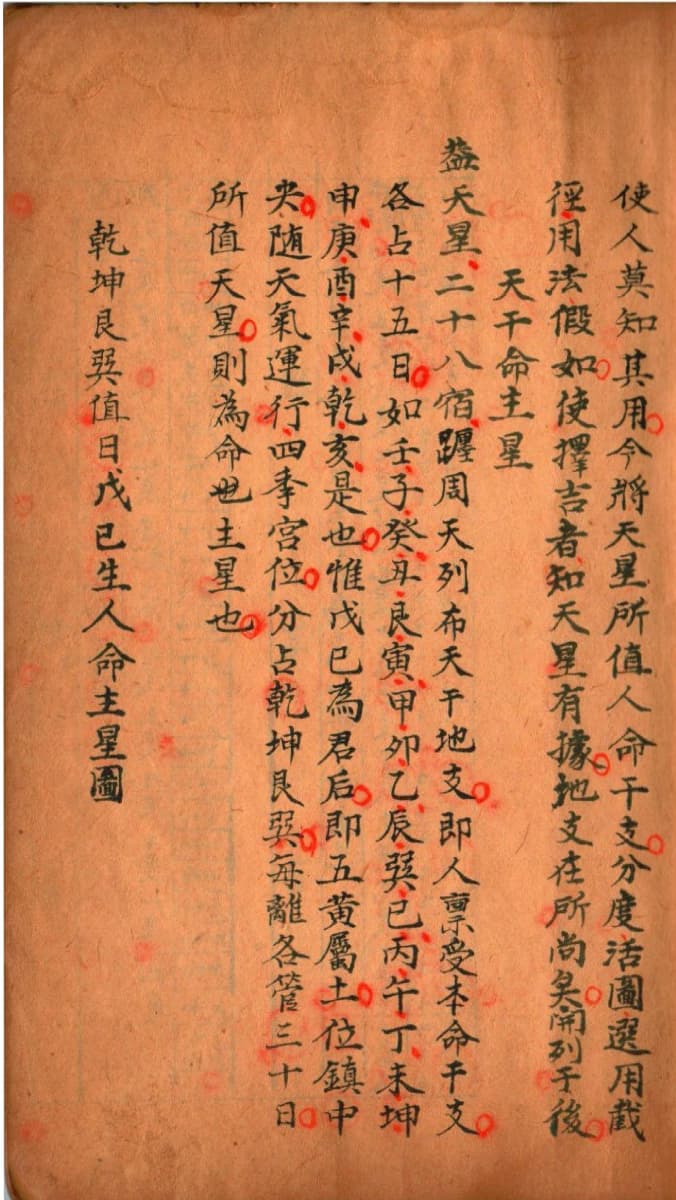 使人莫知其用今將天星所值人命干支分度活圖選用截
徑用法假如使擇吉者知天星有據地支在所尚矣開列于後
天干命主星
蓋天星二十八宿躔周天列布天干地支即人禀受本命干支
各占十五日如壬子癸丑艮寅甲卯乙辰巽巳丙午丁未坤
申庚酉辛戌乾亥是也惟戊己為君后即五黄屬土位鎮中
央随天氣運行四季宮位分占乾坤艮巽每離各管三十日
所值天星則為命也主星也
乾坤艮巽值日戊己生人命主星圖